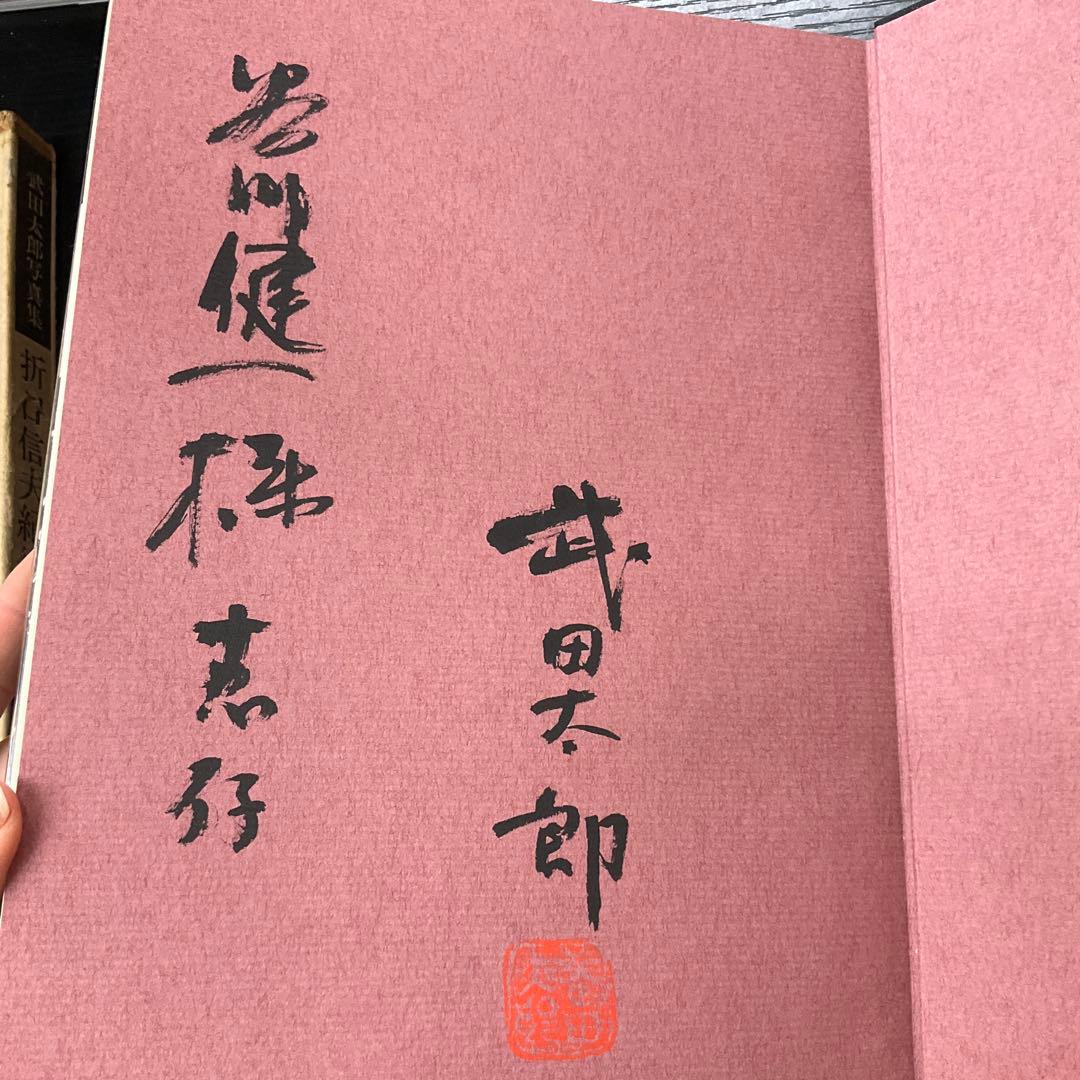 武田太郎
谷川健一様 恵存
武田太郎写真集
折口信夫